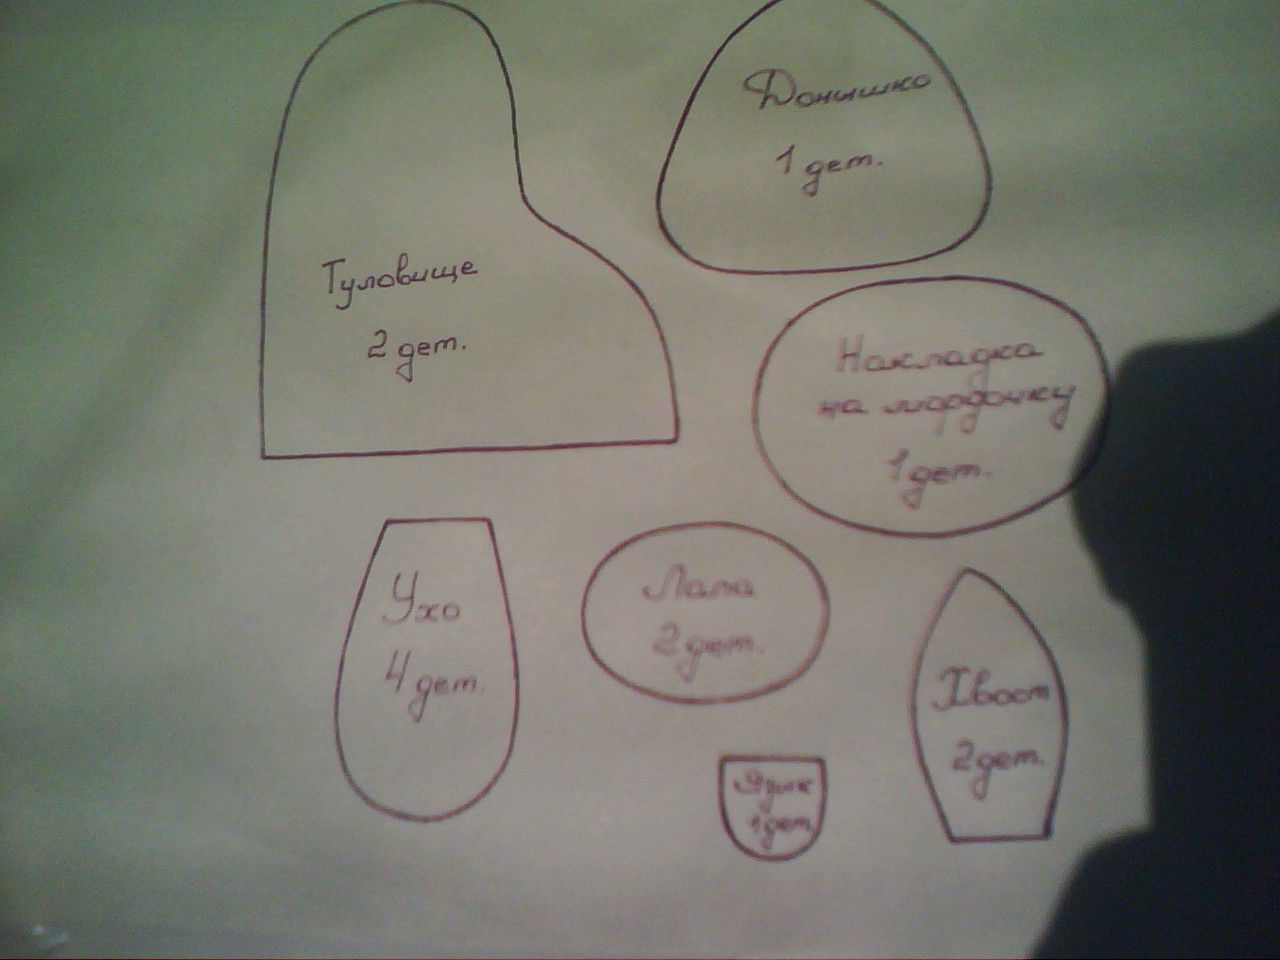 Донышко
1 дет.
Туловище
2 дет.
Накладка
на мордочку
1 дет.
Ухо
4 дет.
Лапа
2 дет.
Хвост
2 дет.
Язык
1 дет